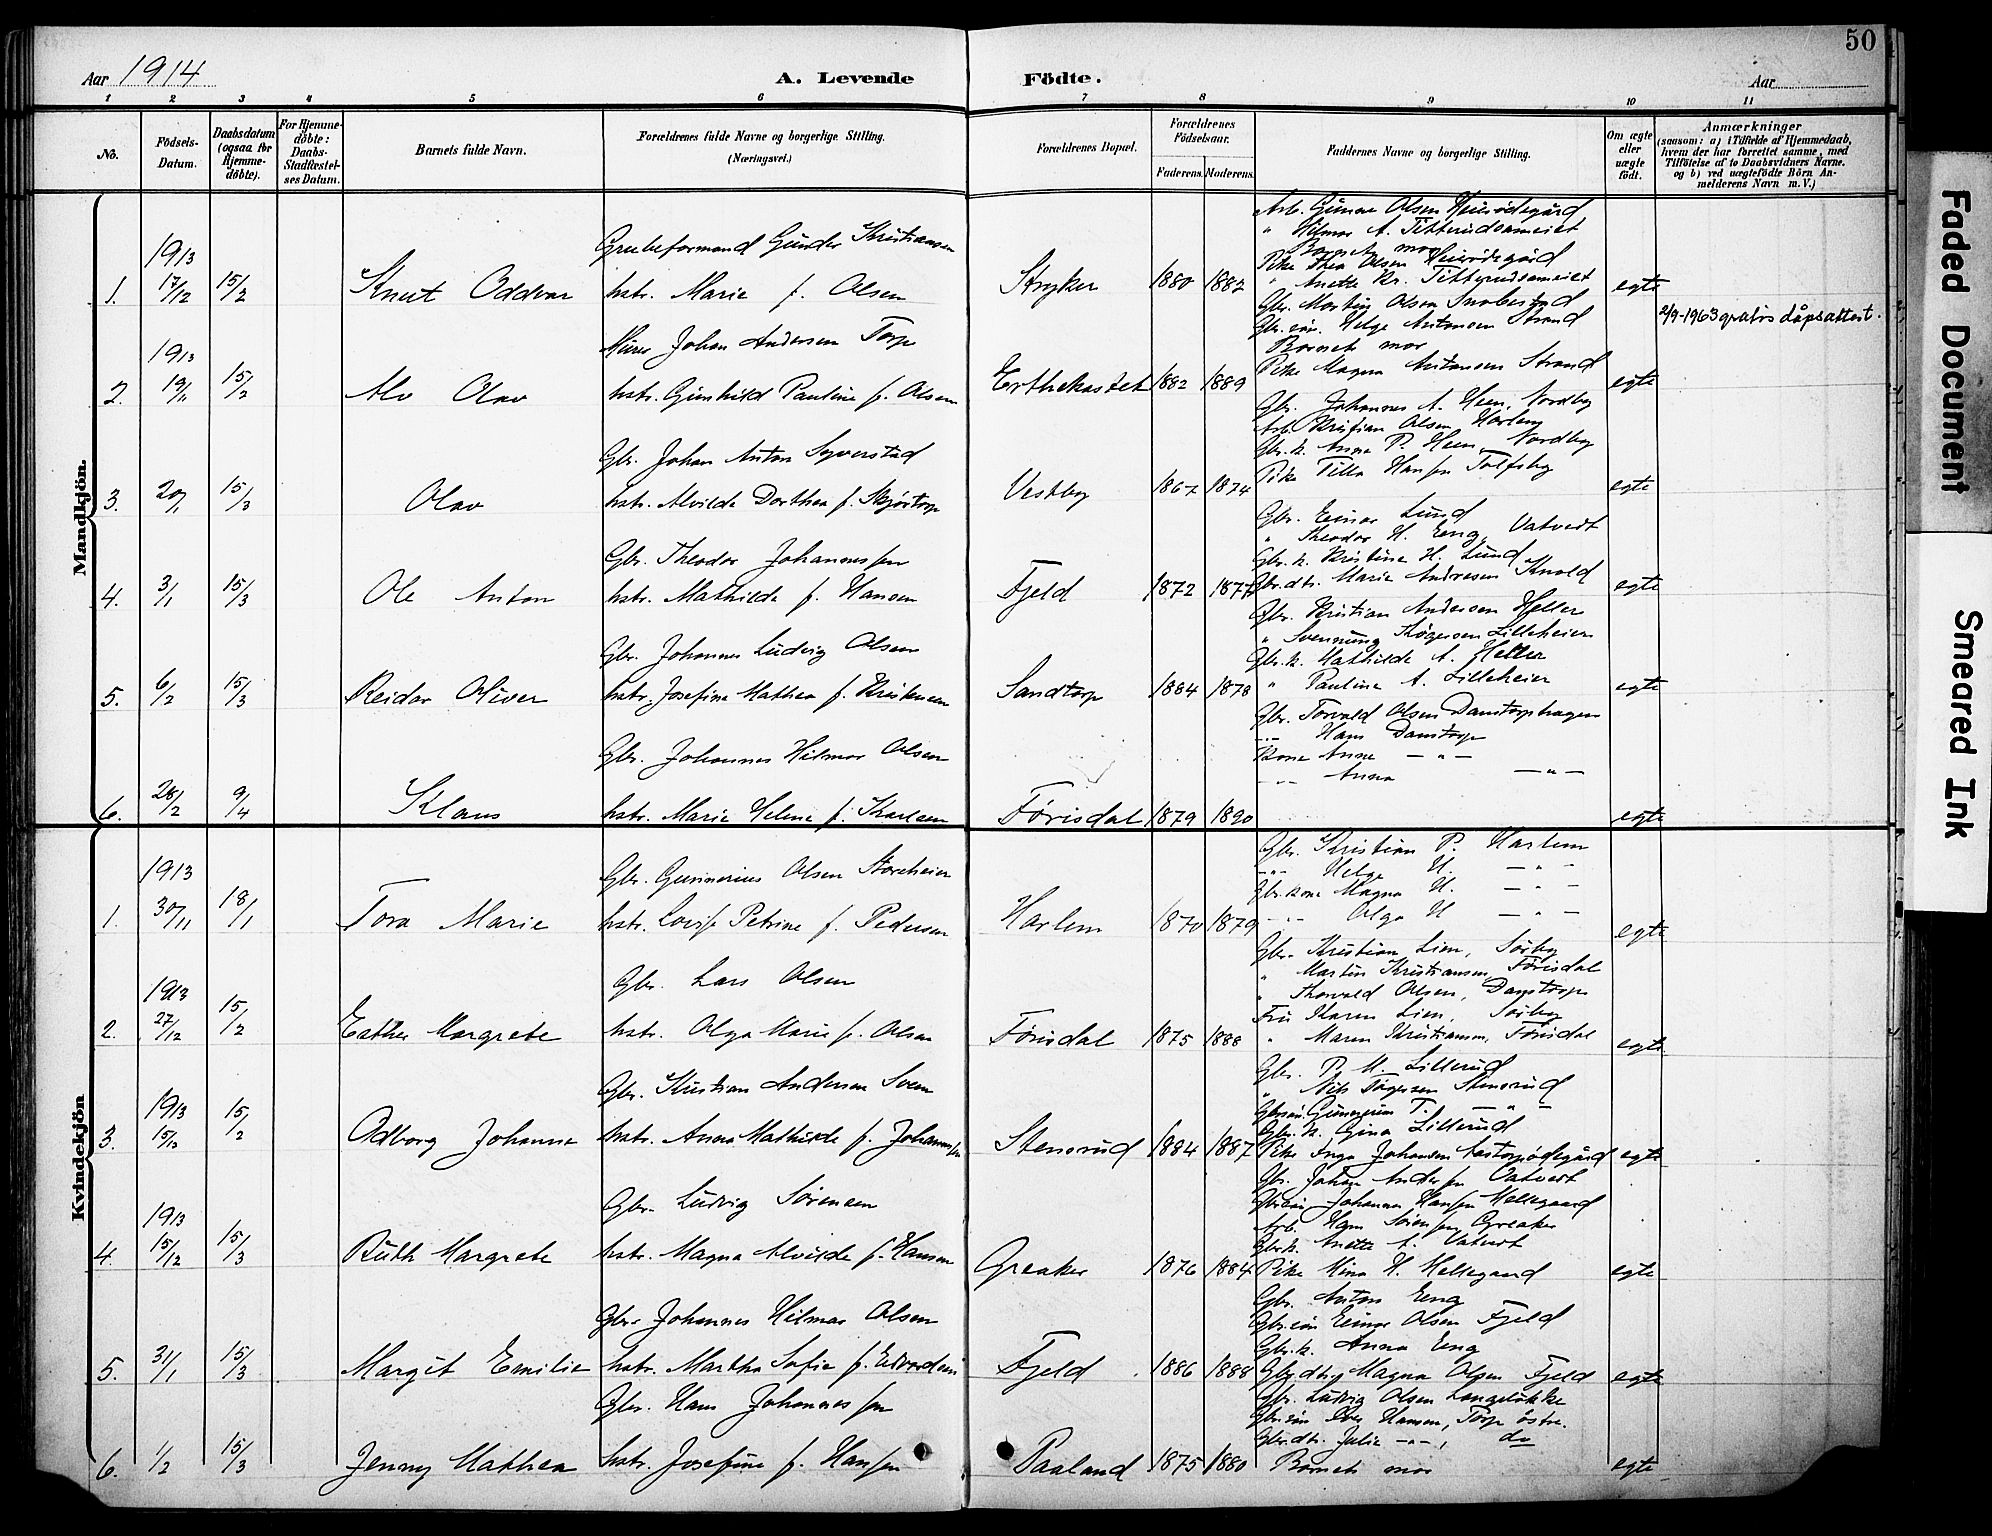 50
Aar 1914
A. Levende Födte.
Aar
1 2 3 4 5 6 7 8 9 10 11
No.
Födsels-Datum.
Daabsdatum (ogsaa for Hjemme-döbte).
For Hjemme-döbte: Daabs-Stadfæstel-ses Datum.
Barnets fulde Navn.
Forældrenes fulde Navne og borgerlige Stilling. (Næringsvei.)
Forældrenes Bopæl.
Forældrenes Födselsaar.
Faderens. Moderens.
Faddernes Navne og borgerlige Stilling.
Om ægte eller uægte födt.
Anmærkninger
(saasom: a) i Tilfælde af Hjemmedaab,
hvem der har forrettet samme, med
Tilföielse af to Daabsvidners Navne.
og b) ved uægtefödte Börn An-
melderens Navn m. V.)
Mandkjön.
Arb. Gunnar Olsen
" Hilmar A. Titterudsameiet
Grubeformand Gunder Kristiansen
Barnets mor
1913
Pike Thea Olsen
1. 17/12 15/2 Knut Oddvar hstr. Marie f. Olsen Stryker 1880 1882 " Anette Kr. Titterudsameiet egte
Gbr. Martin Olsen Snobestad
2/9-1963 gratis dåpsattest.
Gbr.sön. Helge Antonsen Strand
Murer Johan Andersen Torp
Barnets mor
1913
Pike Magna Antonsen Strand
2. 19/11 15/2 Alv Olav hstr. Gunhild Pauline f. Olsen Erthekastet 1882 1889 egte
Gbr. Johannes A. Heen, Nordby
Arb. Kristian Olsen Harlem
Gbr. Johan Anton Syverstad
Gbr.k. Anna P. Heen, Nordby
Pike Tilla Hansen Tolfsby
3. 20/1 15/3 Olav hstr. Alvilde Dorthea f. Skjörtorp Vestby 1867 1874 egte
Gbr. Einar Lund
" Theodor H. Eeng, Vatvedt
Gbr. Theodor Johannessen
Gbr.k. Kristine H. Lund
4. 3/1 15/3 Ole Anton hstr. Mathilde f. Hansen Fjeld 1872 1877 Gbr.dtr. Marie Andresen Knold egte
Gbr. Kristian Andersen Heller
" Svennung Lilleheier
Gbr. Johannes Ludvig Olsen
Gbr.k. Mathilde A. Heller
5. 6/2 15/3 Reidar Oliver hstr. Josefine Mathea f. Kristensen Sandtorp 1884 1878 " Pauline A. Lilleheier egte
Gbr. Torvald Olsen Damstorphagen
-"- Hans Damstorp
Gbr. Johannes Hilmar Olsen
Kone Anne -"-
-"- Anna -"-
6. 28/2 9/4 Klaus hstr. Marie Helene f. Karlsen Förisdal 1879 1890 egte
Kvindekjön
Gbr. Kristian P. Harlem
-"- Helge U. -"-
1913 Gbr. Gunnerius Olsen Storeheier
Gbr.kone Magna U. -"-
1. 30/11 18/1 Tora Marie hstr. Lovise Petrine f. Pedersen Harlem 1870 1879 -"- Olga U -"- egte
Gbr. Kristian Lien, Sörby
" Martin Kristiansen, Förisdal
Gbr. Lars Olsen
" Thorvald Olsen, Damstorp
1913
Fru Karen Lien, Sörby
2. 27/12 15/2 Esther Margrete hstr. Olga Marie f. Olsen Förisdal 1875 1888 " Maren Kristiansen, Förisdal egte
Gbr. P. M. Lillerud
" Nils Torgersen Stensrud
Gbr. Kristian Andersen Sveen
Gbrsön. Gunnerius T. -"-
1913
Gbr.k. Gina Lillerud
3. 15/12 15/2 Odborg Johanne hstr. Anna Mathilde f. Johannessen Stensrud 1884 1887 Pike Inga Johansen egte
Gbr. Johan Andersen Vatvedt
Gbr. Ludvig Sörensen
Gbr.sön Johannes Hansen Hellegaard
1913
Arb. Hans Sörensen, Greaker
Gbr.k. Anette A. Vatvedt
4. 15/12 15/3 Ruth Margrete hstr. Magna Alvilde f. Hansen Greaker 1876 1884 Pike Mina H. Hellegaard egte
Gbr. Anton Eeng
Gbr. Johannes Hilmar Olsen
Gbr.sön Einar Olsen Fjeld
Gbr.k. Anna Eeng
5. 31/1 15/3 Margit Emilie hstr. Martha Sofie f. Edvardsen Fjeld 1886 1888 Gbr.dtr. Magna Olsen Fjeld egte
Gbr. Ludvig Olsen Langelökke
Gbr. Hans Johannessen
Gbr.sön Iver Hansen, Torp östre.
Gbr.dtr. Julie -"-, do
6. 1/2 15/3 Jenny Mathea hstr. Josefine f. Hansen Paaland 1875 1880 Barnets mor egte
Faded Document
Smeared Ink